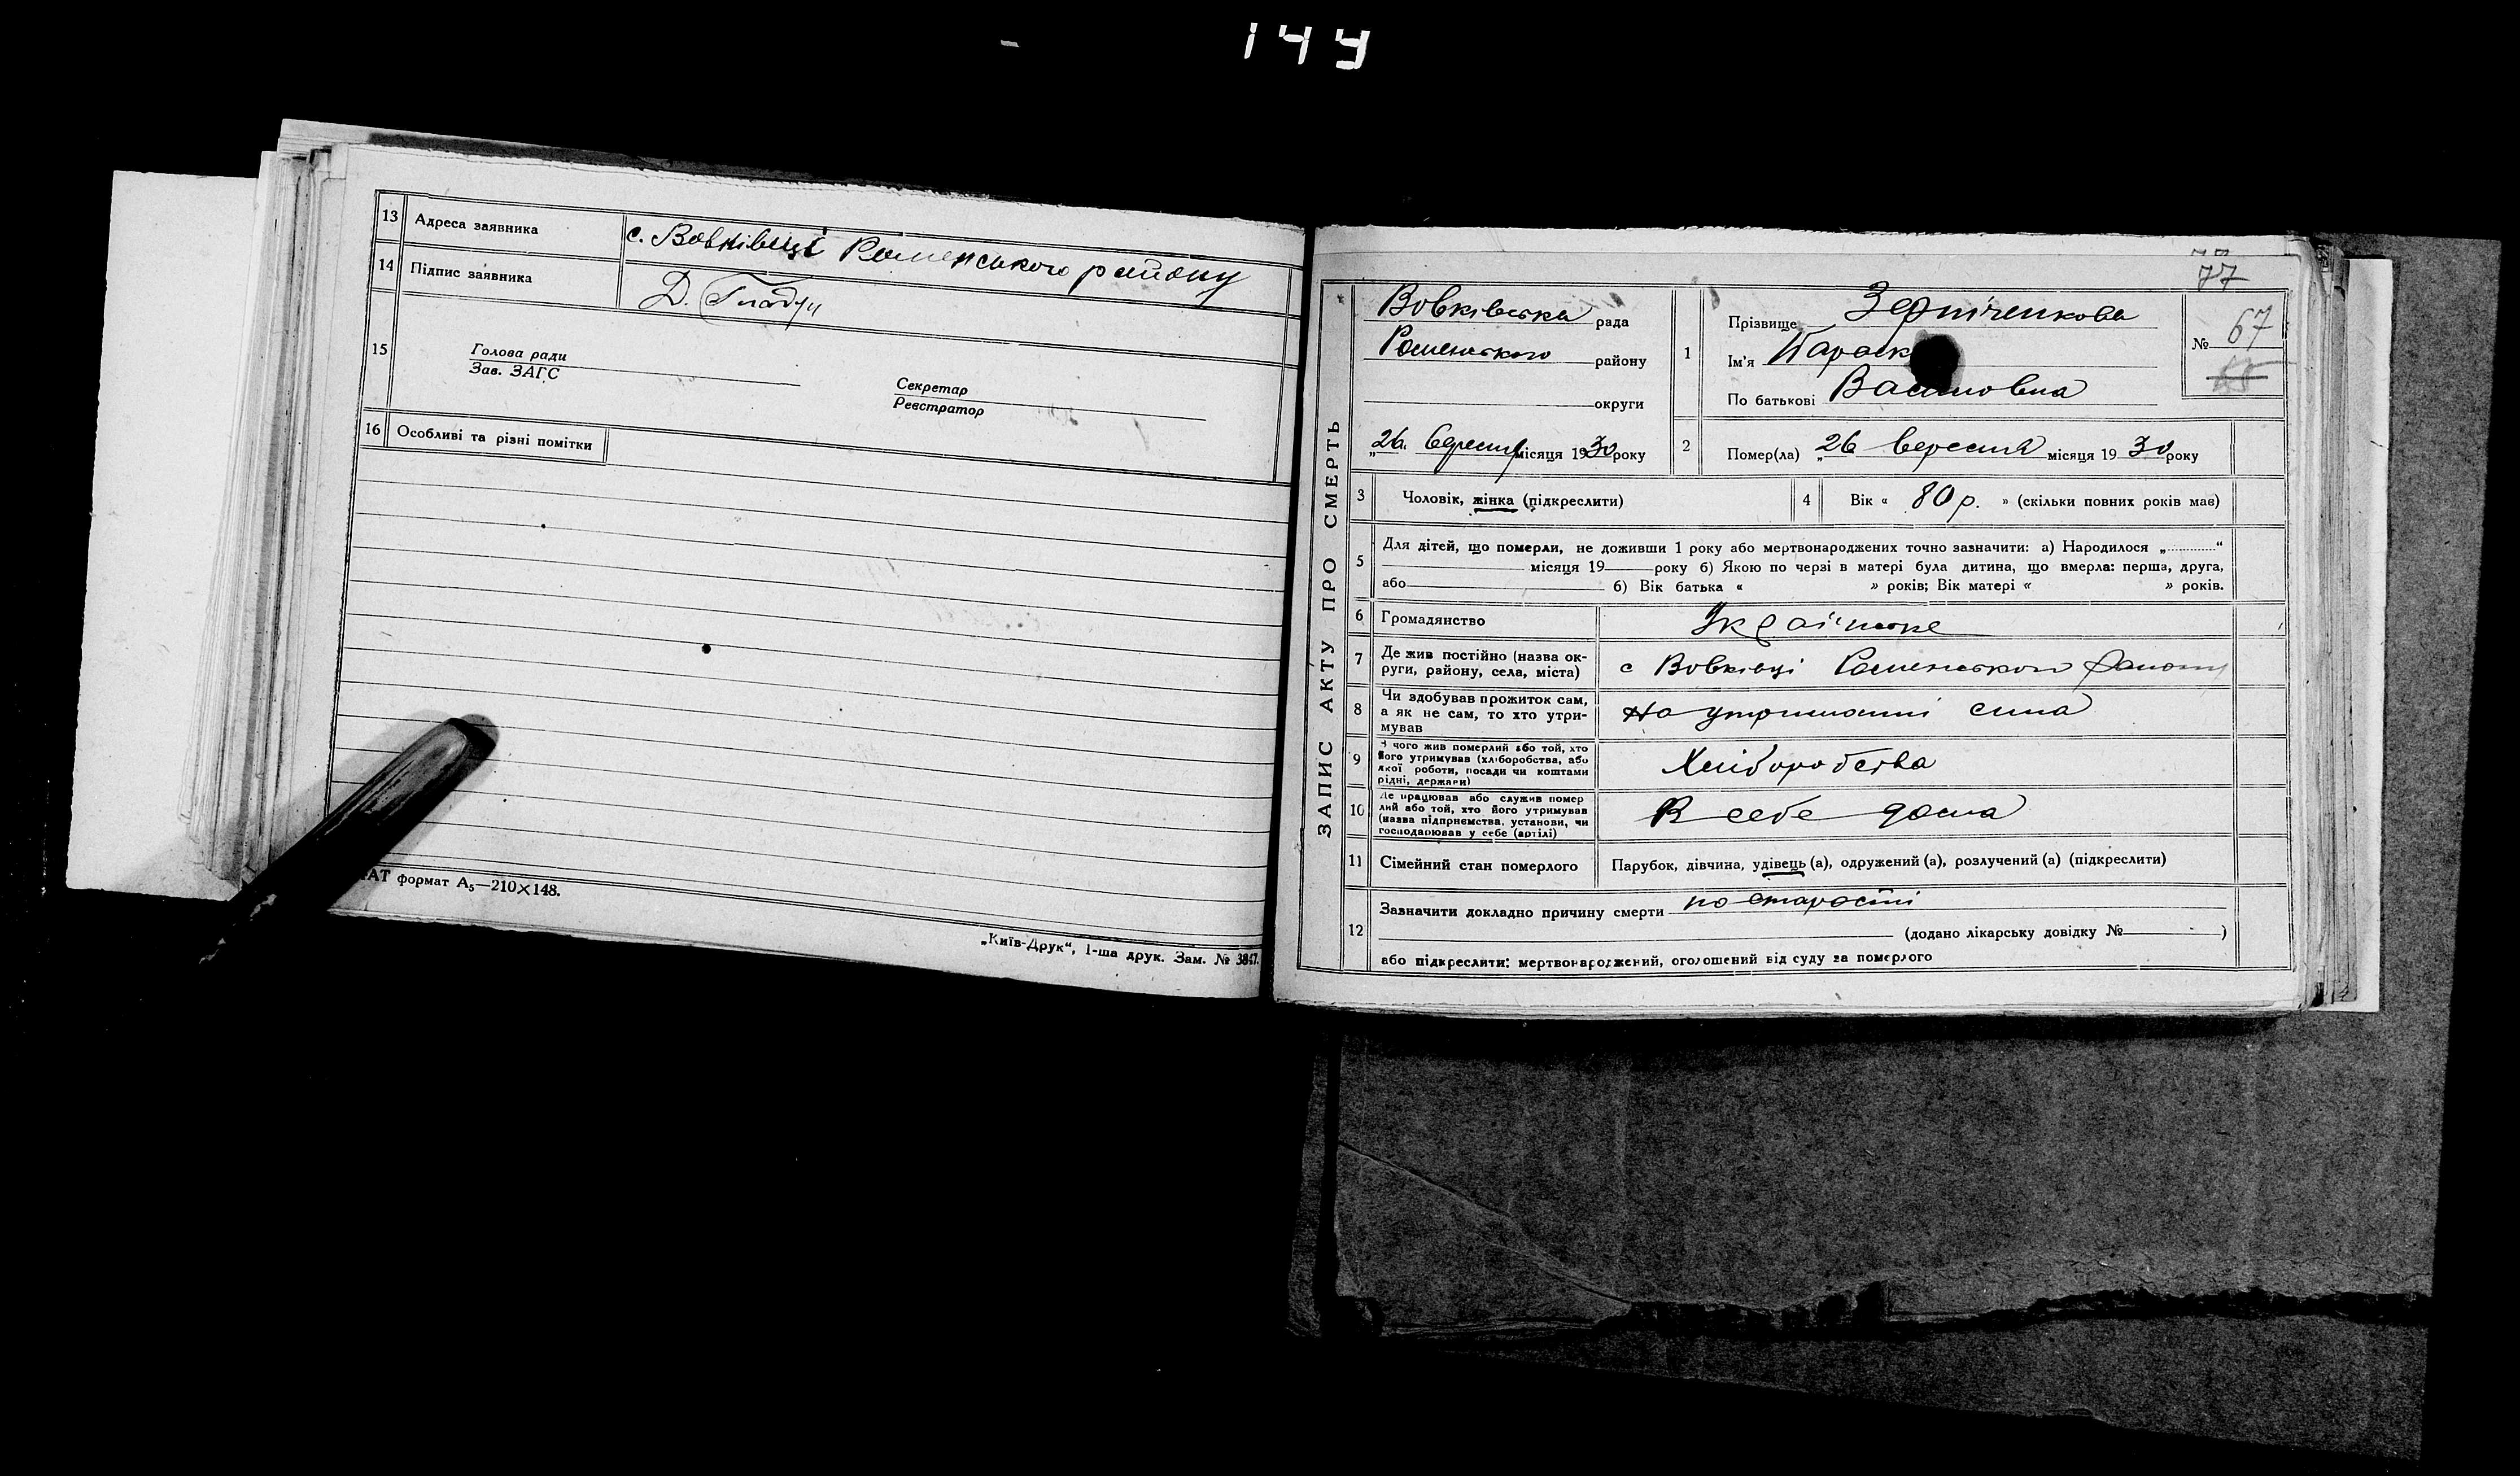 144
13 Адреса заявника с. Вовківці Роменського району
14 Підпис заявника Д. Гладун
15
Голова ради
Зав. ЗАГС
Секретар
Реєстратор
16 Особливі та різні помітки
формат А₅—210×148.
„Київ-Друк“, 1-ша друк. Зам. № 3847.
77
ЗАПИС АКТУ ПРО СМЕРТЬ
Вовківська рада
Роменського району
округи
„26“ вересня місяця 1930 року
1
Прізвище
Ім'я Параск
По батькові
№ 67
2 Помер(ла) „26 вересня місяця 1930 року
3 Чоловік, жінка (підкреслити)
4 Вік « 80 р. » (скільки повних років має)
5 Для дітей, що померли, не доживши 1 року або мертвонароджених точно зазначити: а) Народилося „............“
місяця 19 року б) Якою по черзі в матері була дитина, що вмерла: перша, друга,
або б) Вік батька « » років; Вік матері « » років.
6 Громадянство Українське
7 Де жив постійно (назва ок-
руги, району, села, міста) с Вовківці Роменського району
8 Чи здобував прожиток сам,
а як не сам, то хто утри-
мував На утриманні сина
9 З чого жив померлий або той, хто
його утримував (хліборобства, або
якої роботи, посади чи коштами
рідні, держави) Хліборобства
10 Де працював або служив помер
лий або той, хто його утримував
(назва підприємства, установи, чи
господарював у себе (артілі) В себе дома
11 Сімейний стан померлого Парубок, дівчина, удівець (а), одружений (а), розлучений (а) (підкреслити)
12 Зазначити докладно причину смерти по старості
(додано лікарську довідку № )
або підкреслити: мертвонароджений, оголошений від суду за померлого